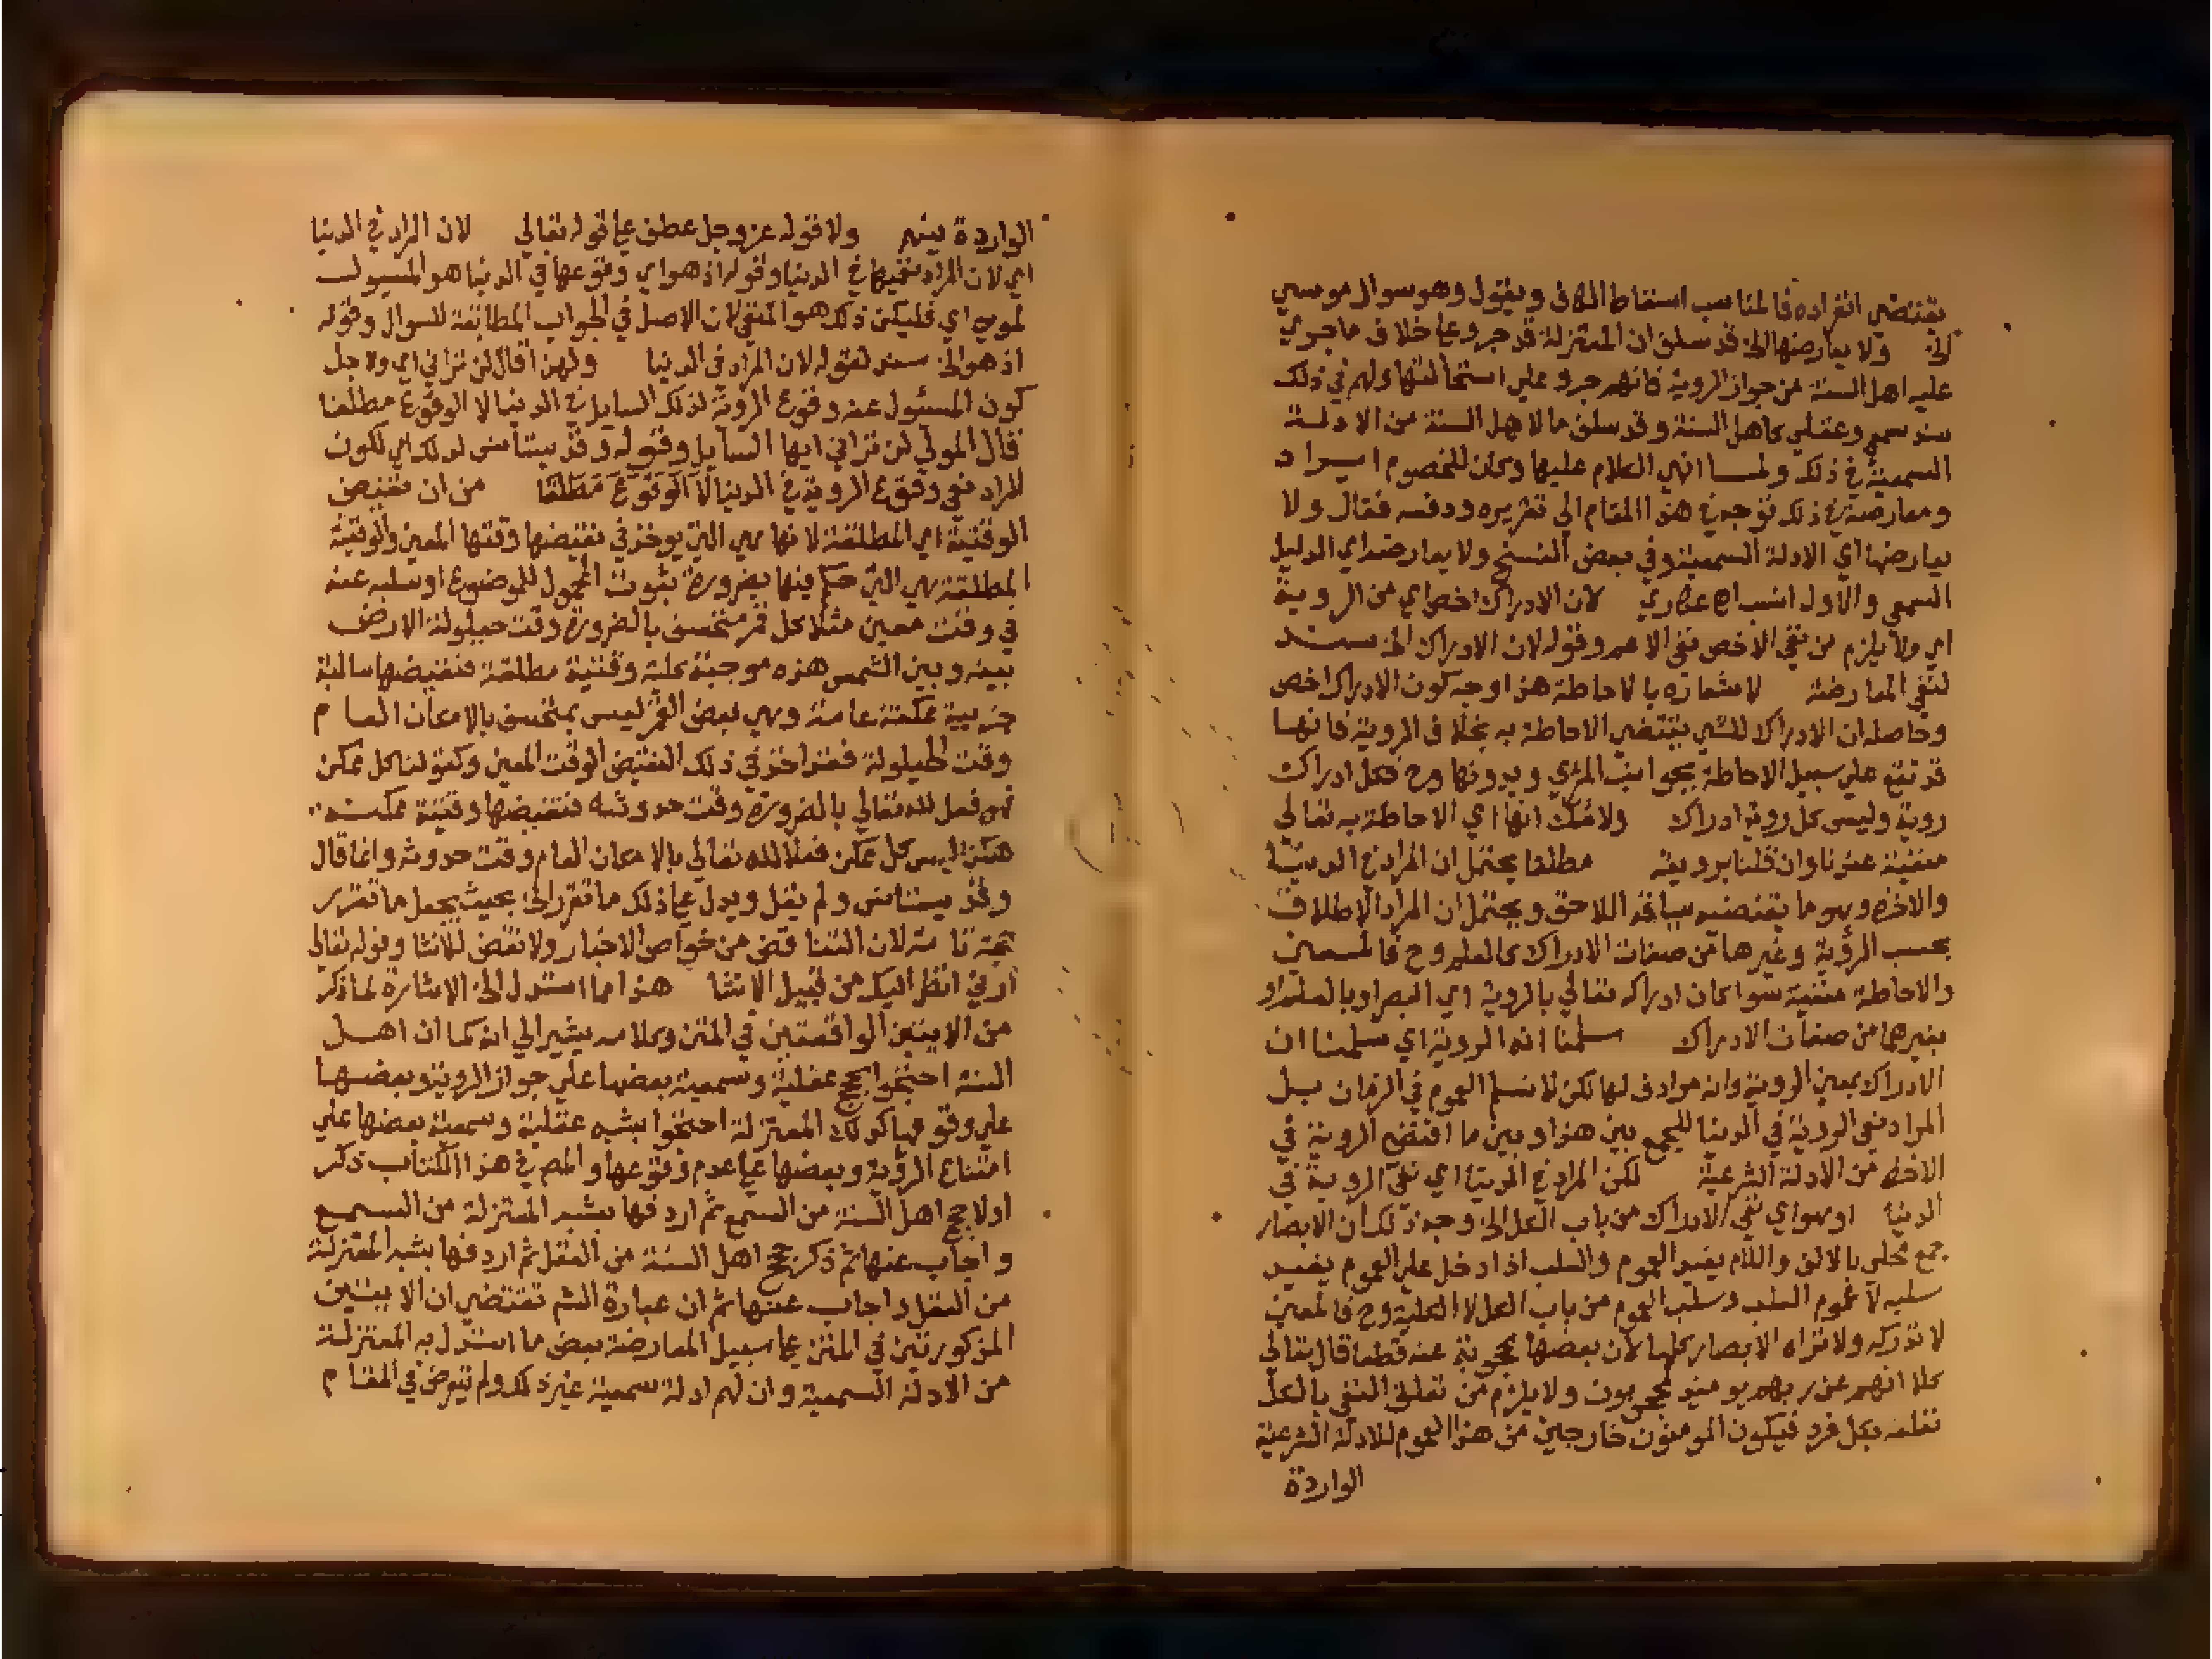 يقتضي انفراده فالمناسب اسقاط الكاف ويقول وهو سوال موسي
الخ ولا يعارضها الخ قد سلف ان المعتزلة قد جروا علي خلاف ما جري
عليه اهل السنة من جواز الروية فانهم جروا علي استحالتها ولهم في ذلك
سند سمعي وعقلي كاهل السنة وقد سلف ما لاهل السنة من الادلة
السمعية في ذلك ولما انهي الكلام عليها وكان للخصوم ايراد
ومعارضة في ذلك توجه في هذا المقام الي تقريره ودفعه فقال ولا
يعارضها اي الادلة السمعية وفي بعض النسخ ولا يعارضه اي الدليل
السمعي والاول انسب لان الادراك اخص اي من الروية
اي ولا يلزم من نفي الاخص نفي الاعم وقوله لان الادراك الخ سند
لنفي المعارضة لاشعاره بالاحاطة هذا وجه كون الادراك اخص
وحاصله ان الادراك للشي يقتضي الاحاطة به بخلاف الروية فانها
قد تقع علي سبيل الاحاطة بجوانب المرئي وبدونها وح فكل ادراك
روية وليس كل روية ادراك ولا شك انها اي الاحاطة به تعالي
منفية عندنا وان قلنا برويته مطلقا يحتمل ان المراد في الدنيا
والاخره وهو ما يقتضيه سياقه اللاحق ويحتمل ان المراد الاطلاق
بحسب الرؤية وغيرها من صفات الادراك كالعلم وح فالمعني
والاحاطة منفية سوا كان ادراكه تعالي بالروية اي البصر او بالعلم او
بغيرهما من صفات الادراك سلمنا انه الروية اي سلمنا ان
الادراك بمعني الروية وانه مرادف لها لكن لا نسلم العموم في الزمان بل
المراد نفي الروية في الدنيا للجمع بين هذا وبين ما اقتضي الروية في
الاخره من الادلة الشرعية لكن المراد في الدنيا اي نفي الروية في
الدنيا او هو اي نفي الادراك من باب الكل الخ وجه ذلك ان الابصار
جمع محلي بالالف واللام يفيد العموم والسلب اذا دخل علي العموم يفيد
سلبه لا عموم السلب وسلب العموم من باب الكل لا الكلية وح فالمعني
لا تدركه ولا تراه الابصار كلها لان بعضها محجوبة عنه قطعا قال تعالي
كلا انهم عن ربهم يوميذ لمحجوبون ولا يلزم من تعلق النفي بالكل
تعلقه بكل فرد فيكون المومنون خارجين من هذا العموم للادلة الشرعية
الواردة
الواردة فيهم ولا قوله عز وجل عطف علي قوله تعالي لان المراد في الدنيا
اي لان المراد نفيها في الدنيا وقوله اذ هو اي وقوعها في الدنيا هو المسيول
لموسي اي فليكن ذلك هو المنفي لان الاصل في الجواب المطابقة للسوال وقوله
اذ هو الخ سند لقوله لان المراد في الدنيا ولهذا قال لن تراني اي ولاجل
كون المسئول عنه وقوع الروية لذلك السايل في الدنيا لا الوقوع مطلقا
قال المولي لن تراني ايها السايل وقوله وقد يستانس لذلك اي لكون
المراد نفي وقوع الروية في الدنيا لا الوقوع مطلقا من ان نقيض
الوقتية اي المطلقة لانها هي التي يوخذ في نقيضها وقتها المعين والوقتية
المطلقة هي التي حكم فيها بضرورة ثبوت المحمول للموضوع او سلبه عنه
في وقت معين مثلا كل قمر منخسف بالضرورة وقت حيلولة الارض
بينه وبين الشمس هذه موجبة كلية وقتية مطلقة فنقيضها سالبة
جزيية ممكنة عامة وهي بعض القمر ليس بمنخسف بالامكان العام
وقت الحيلولة فقد اخذ في ذلك النقيض الوقت المعين وكقولنا كل ممكن
فهو فعل لله تعالي بالضرورة وقت حدوثه فنقيضها وقتية ممكنة
هكذا ليس كل ممكن فعلا لله تعالي بالامكان العام وقت حدوثه وانما قال
وقد يستانس ولم يقل ويدل علي ذلك ما تقرر الخ بحيث يجعل ما تقرر
حجة تامة لان التناقض من خواص الاخبار ولا نقض للانشا وقوله تعالي
ارني انظر اليك من قبيل الانشا هذا مما استدل الخ الاشارة لما ذكر
من الايتين الواقعتين في المتن وكلامه يشير الي انه كما ان اهل
السنة احتجوا بحجج عقلية وسمعية بعضها علي جواز الروية وبعضها
علي وقوعها كذلك المعتزلة احتجوا بشبه عقلية وسمعية بعضها علي
امتناع الرؤية وبعضها علي عدم وقوعها والمص في هذا الكتاب ذكر
اولا حجج اهل السنة من السمع ثم اردفها بشبه المعتزلة من السمع
واجاب عنها ثم ذكر حجج اهل السنة من العقل ثم اردفها بشبه المعتزلة
من العقل واجاب عنها ثم ان عبارة الشم تقتضي ان الايتين
المذكورتين في المتن علي سبيل المعارضة بعض ما استدل به المعتزلة
من الادلة السمعية وان لهم ادلة سمعية غير ذلك ولم تتعرض في المقام